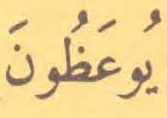 يُوعَظُونَ